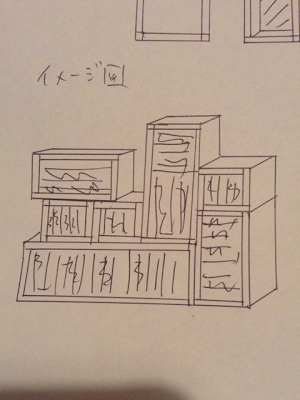 イメージ図